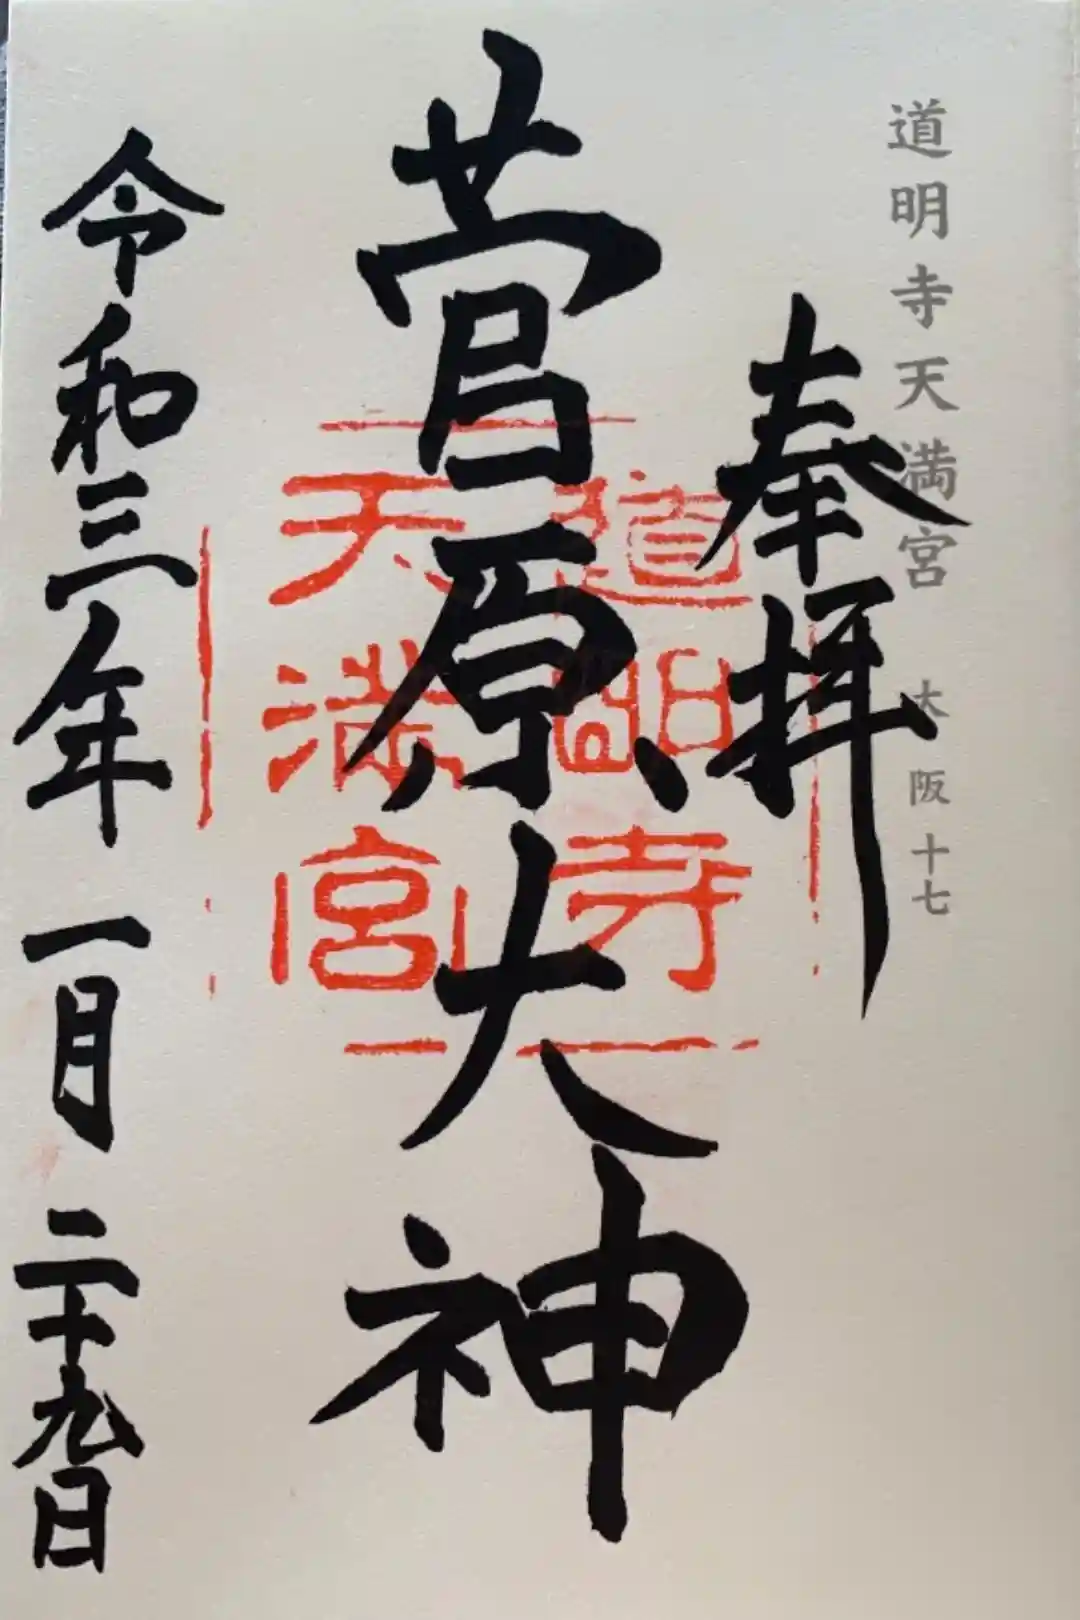 道明寺天満宮 大阪十七
奉拝
道明寺
天満宮
菅原大神
令和三年一月二十九日